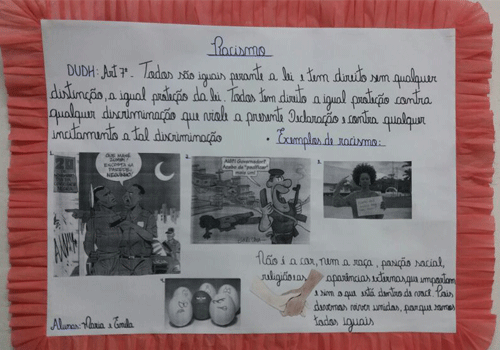 Racismo
DUDH: Art 7º - Todos são iguais perante a lei e tem direito sem qualquer
distinção, a igual proteção da lei. Todos tem direito a igual proteção contra
qualquer discriminação que viole a presente Declaração e contra qualquer
incitamento a tal discriminação
• Exemplos de racismo:
1.
2.
3.
4.
Não é a cor, nem a raça, posição social,
religião e as aparências externas, que importam
e sim o que está dentro de você. Pois
devemos viver unidos, porque somos
todos iguais
Alunas: Maria e Emila